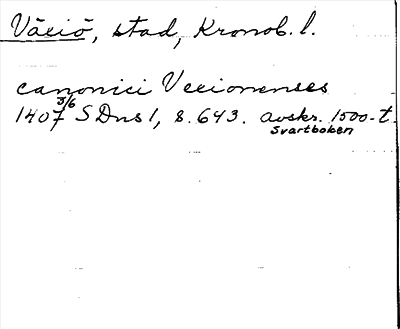 Växiö, stad, Kronob. l.
canonici Vexionenses
1407 3/6 SDns 1, s. 643. avskr. 1500-t.
Svartboken